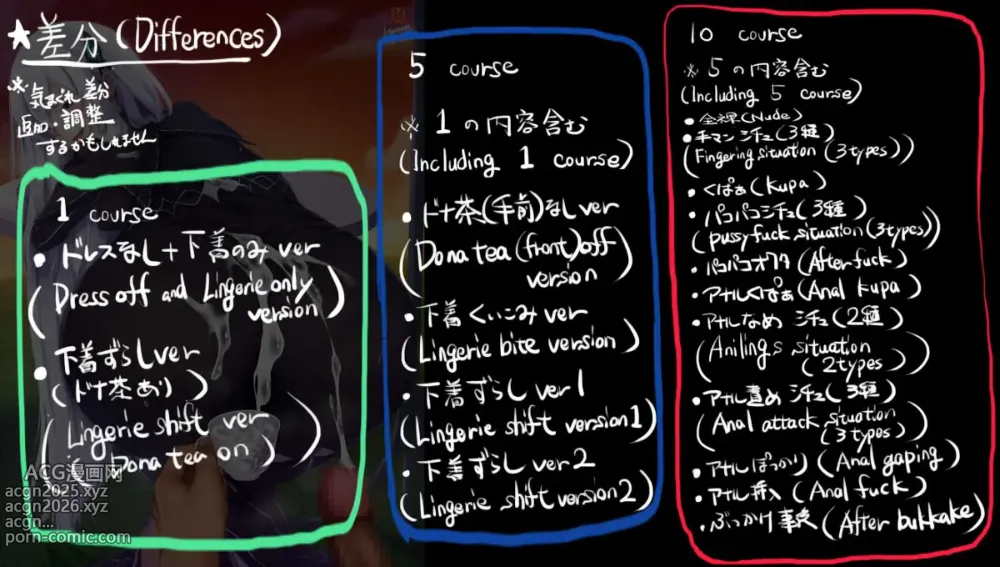 ★差分(Differences)
※気まぐれ差分
追加・調整
するかもしれません
1 course
・ドレスなし+下着のみ ver
(Dress off and Lingerie only
version)
・下着ずらしver
(ドナ茶あり)
(Lingerie shift ver
(Dona tea on)
5 course
※1の内容含む
(Including 1 course)
・ドナ茶(手前)なし ver
(Dona tea (front) off
version)
・下着くいこみ ver
(Lingerie bite version)
・下着ずらし ver 1
(Lingerie shift version1)
・下着ずらし ver 2
(Lingerie shift version2)
10 course
※5の内容含む
(Including 5 course)
・全裸(Nude)
・手マンシチュ(3種)
(Fingering situation (3types))
・くぱぁ(Kupa)
・パコパコシチュ(3種)
(pussy fuck situation (3types))
・パコパコオワタ(After fuck)
・アナルくぱぁ(Anal kupa)
・アナルなめ シチュ(2種)
(Anilings situation
(2types))
・アナル責め シチュ(3種)
(Anal attack situation
(3types))
・アナルぽっかり(Anal gaping)
・アナル挿入(Anal fuck)
・ぶっかけ事後(After bukkake)
ACG漫画网
acgn2025.xyz
acgn2026.xyz
acgn...
porn-comic.com